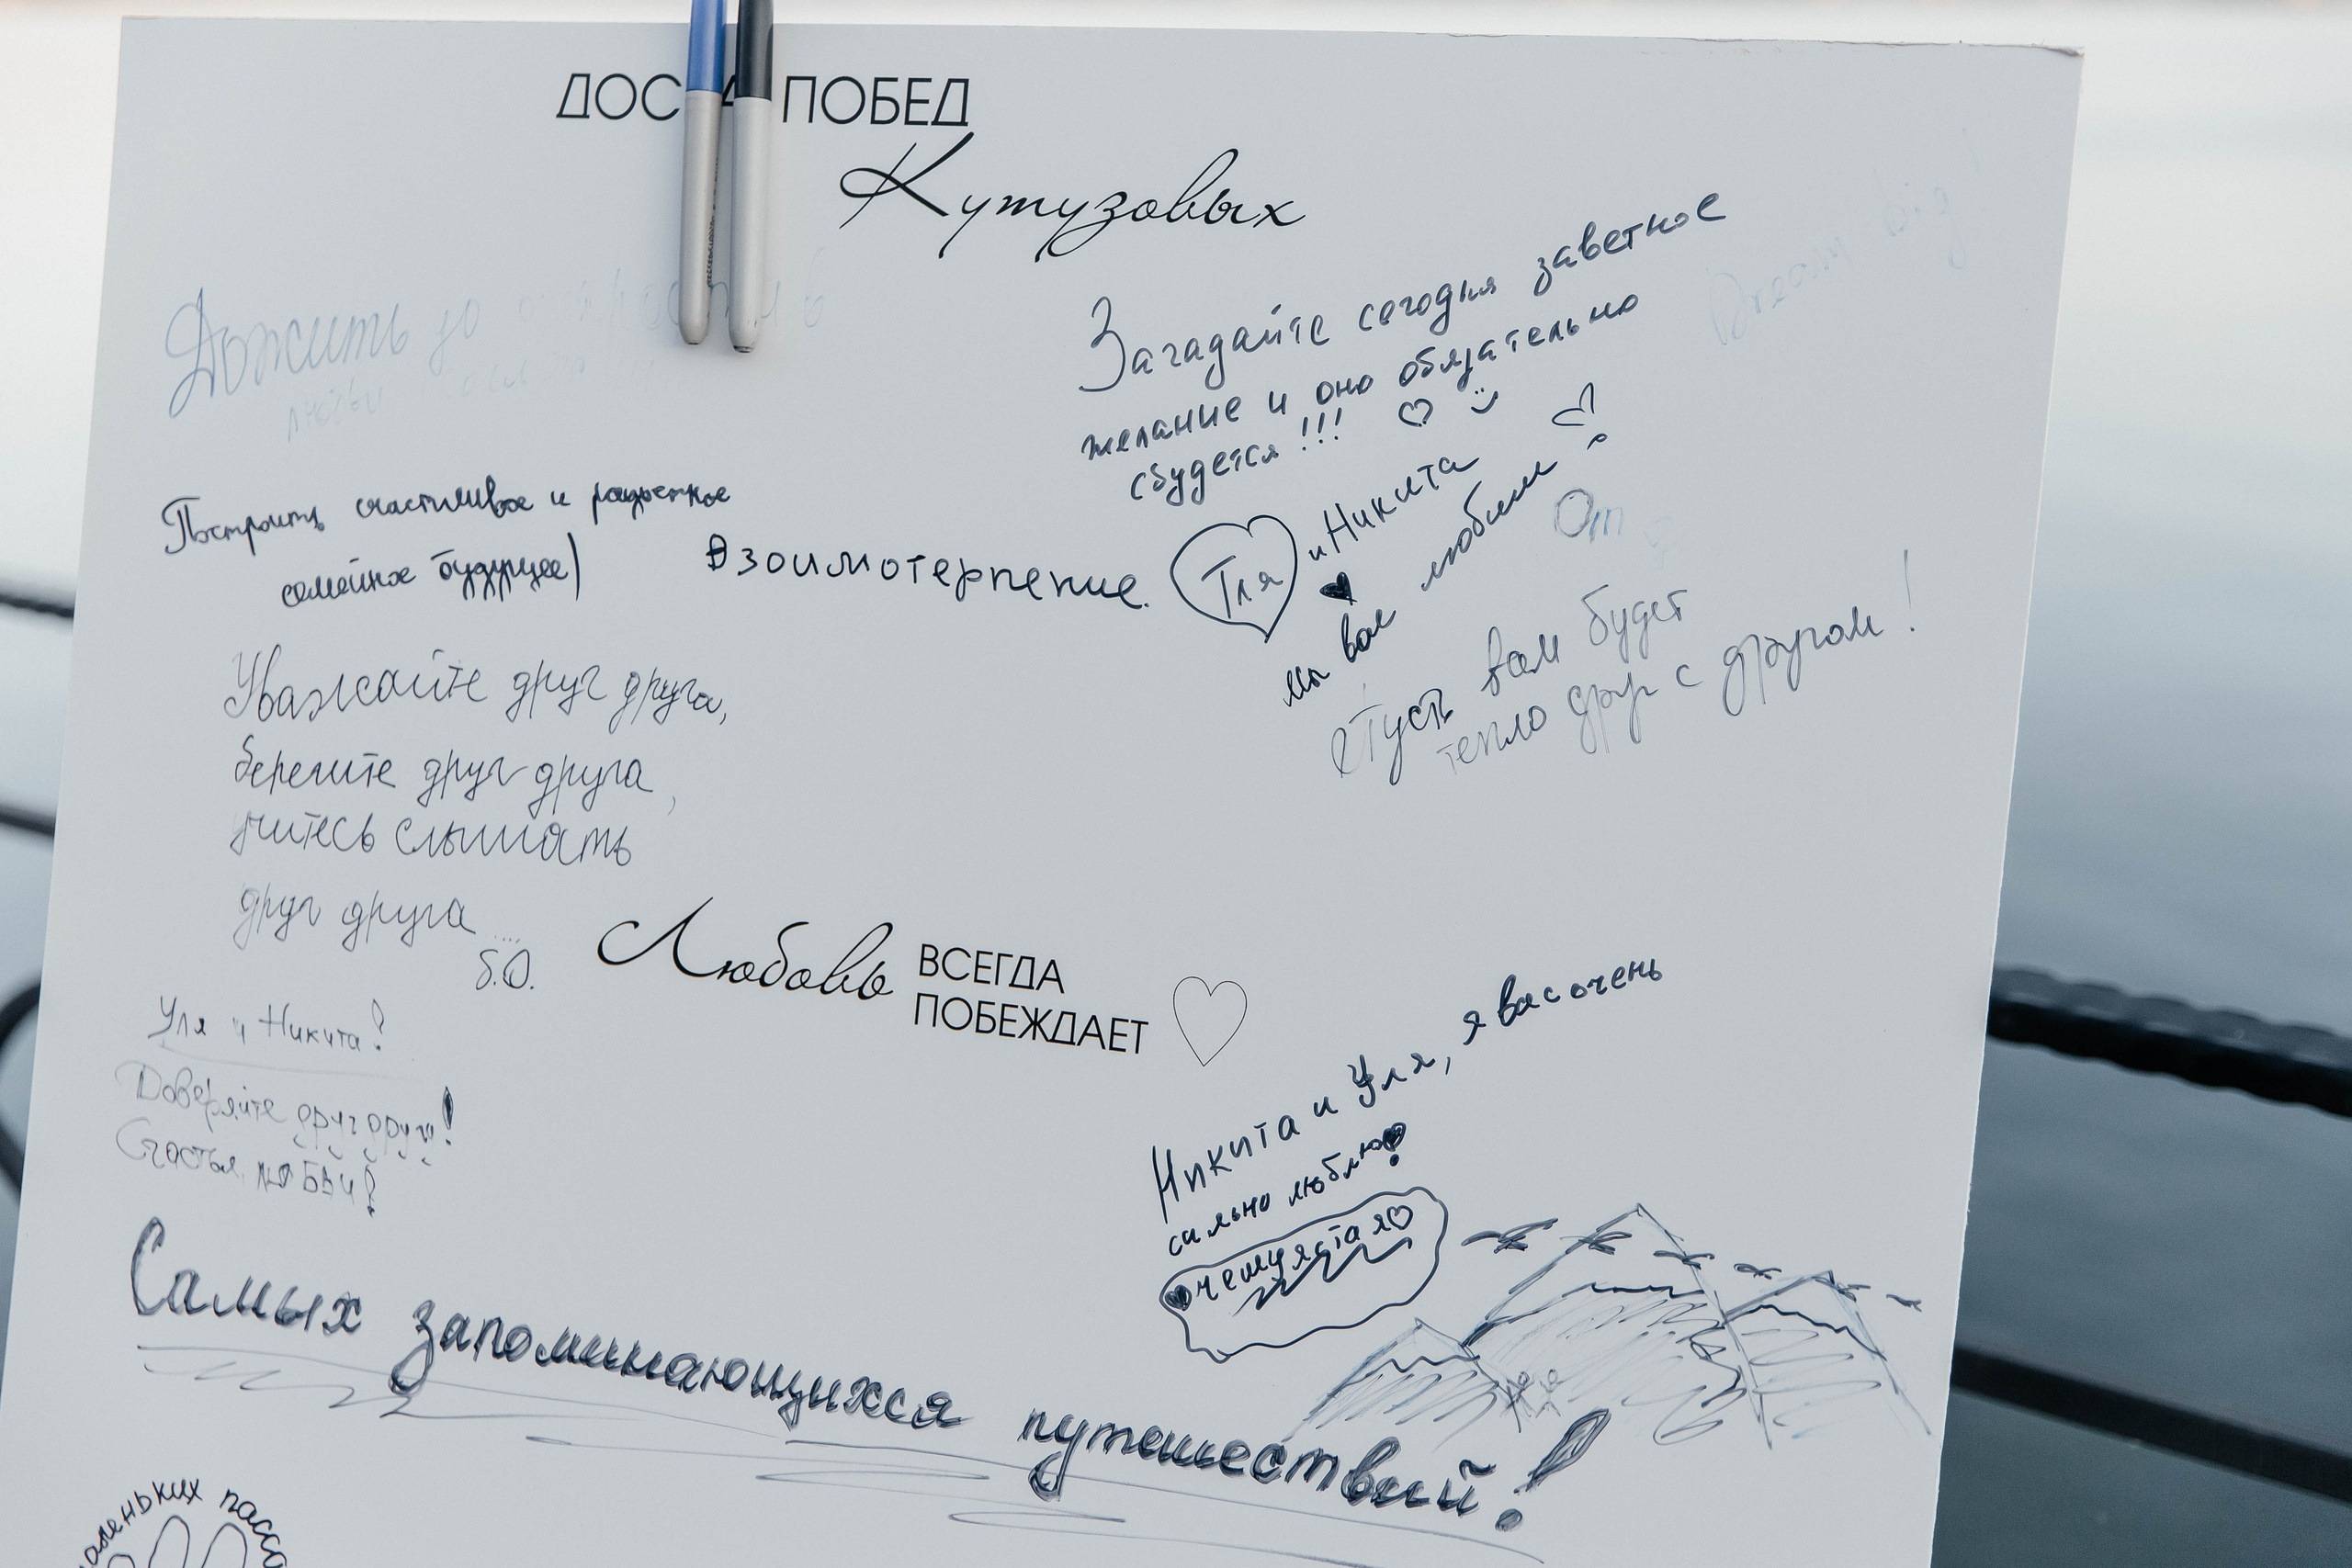 ДОС А ПОБЕД
Кутузовых
Дожить до
Dream big
Загадайте сегодня заветное
желание и оно обязательно
сбудется!!!
Построить счастливое и радостное
семейное будущее)
Взоимотерпение.
Уля и Никита
мы вас любим
От
Пусть вам будет
тепло друг с другом!
Уважайте друг друга,
берегите друг друга,
учитесь слышать
друг друга ....
Б.О.
Любовь ВСЕГДА
ПОБЕЖДАЕТ
Уля и Никита!
Доверяйте друг другу!
Счастья, любви!
Никита и Уля, я вас очень
сильно люблю
Самых запоминающихся путешествий!
маленьких пасса